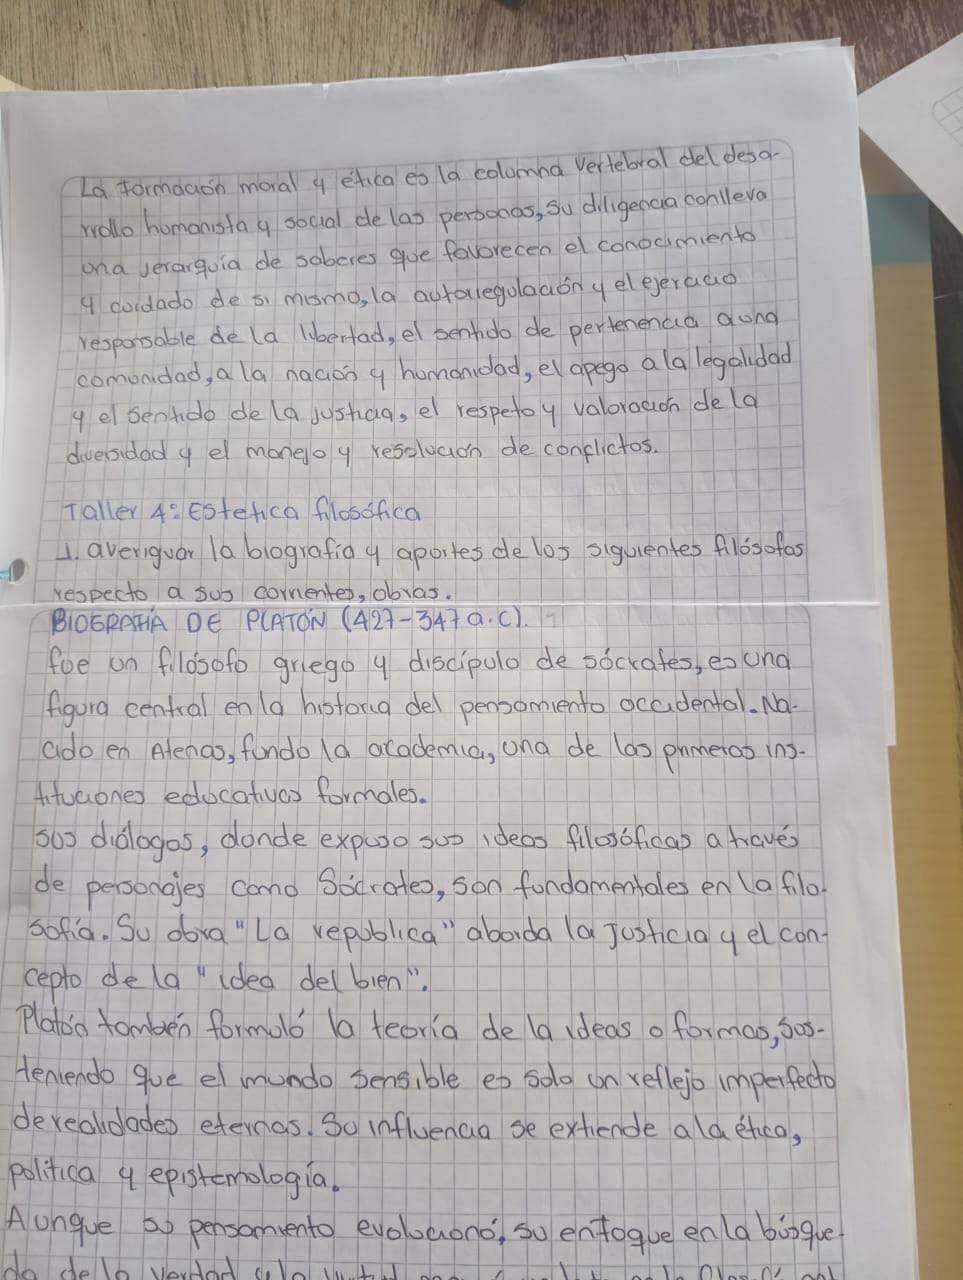 La formación moral y ética es la columna vertebral del desa-
rrollo humanista y social de las personas, su diligencia conlleva
una jerarquía de saberes que favorecen el conocimiento
y cuidado de si mismo, la autorregulación y el ejercicio
responsable de la libertad, el sentido de pertenencia a una
comunidad, a la nación y humanidad, el apego a la legalidad
y el sentido de la justicia, el respeto y valoración de la
diversidad y el manejo y resolución de conflictos.
Taller 4: Estetica filosófica
1. averiguar la biografia y aportes de los siguientes filósofos
respecto a sus corrientes, obras.
BIOGRAFIA DE PLATÓN (427-347 a.c).
fue un filósofo griego y discípulo de sócrates, es una
figura central en la historia del pensamiento occidental. Na-
cido en Atenas, fundo la academia, una de las primeras ins-
tituciones educativas formales.
sus diálogos, donde expuso sus ideas filosóficas a través
de personajes como Sócrates, son fundamentales en la filo-
sofía. Su obra "La republica" aborda la justicia y el con-
cepto de la "idea del bien".
Platón también formuló la teoría de la ideas o formas, sos-
teniendo que el mundo sensible es solo un reflejo imperfecto
de realidades eternas. Su influencia se extiende a la ética,
politica y epistemología.
Aunque su pensamiento evolucionó, su enfoque en la búsque-
da de la verdad y la